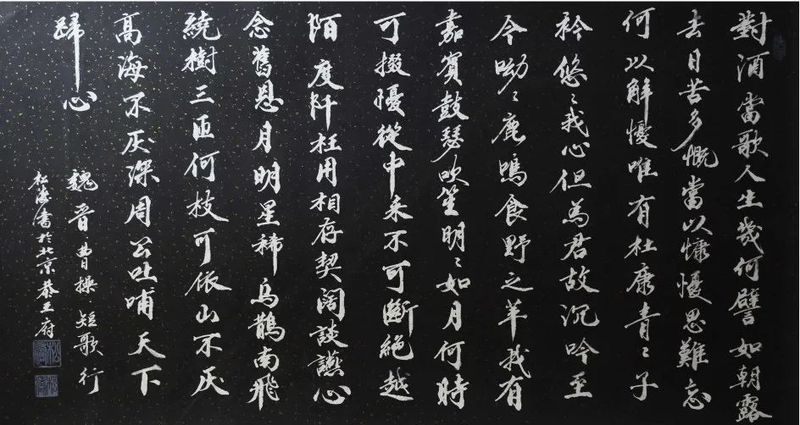 對酒當歌人生幾何譬如朝露
去日苦多慨當以慷懮思難忘
何以解懮唯有杜康青〻子
衿悠〻我心但為君故沉吟至
今呦〻鹿鳴食野之苹我有
嘉賓鼓瑟吹笙明〻如月何時
可掇懮從中来不可斷絕越
陌度阡枉用相存契闊談讌心
念舊恩月明星稀烏鵲南飛
繞樹三匝何枝可依山不厌
高海不厌深周公吐哺天下
歸心
魏晋曹操短歌行
松濤書於北京恭王府